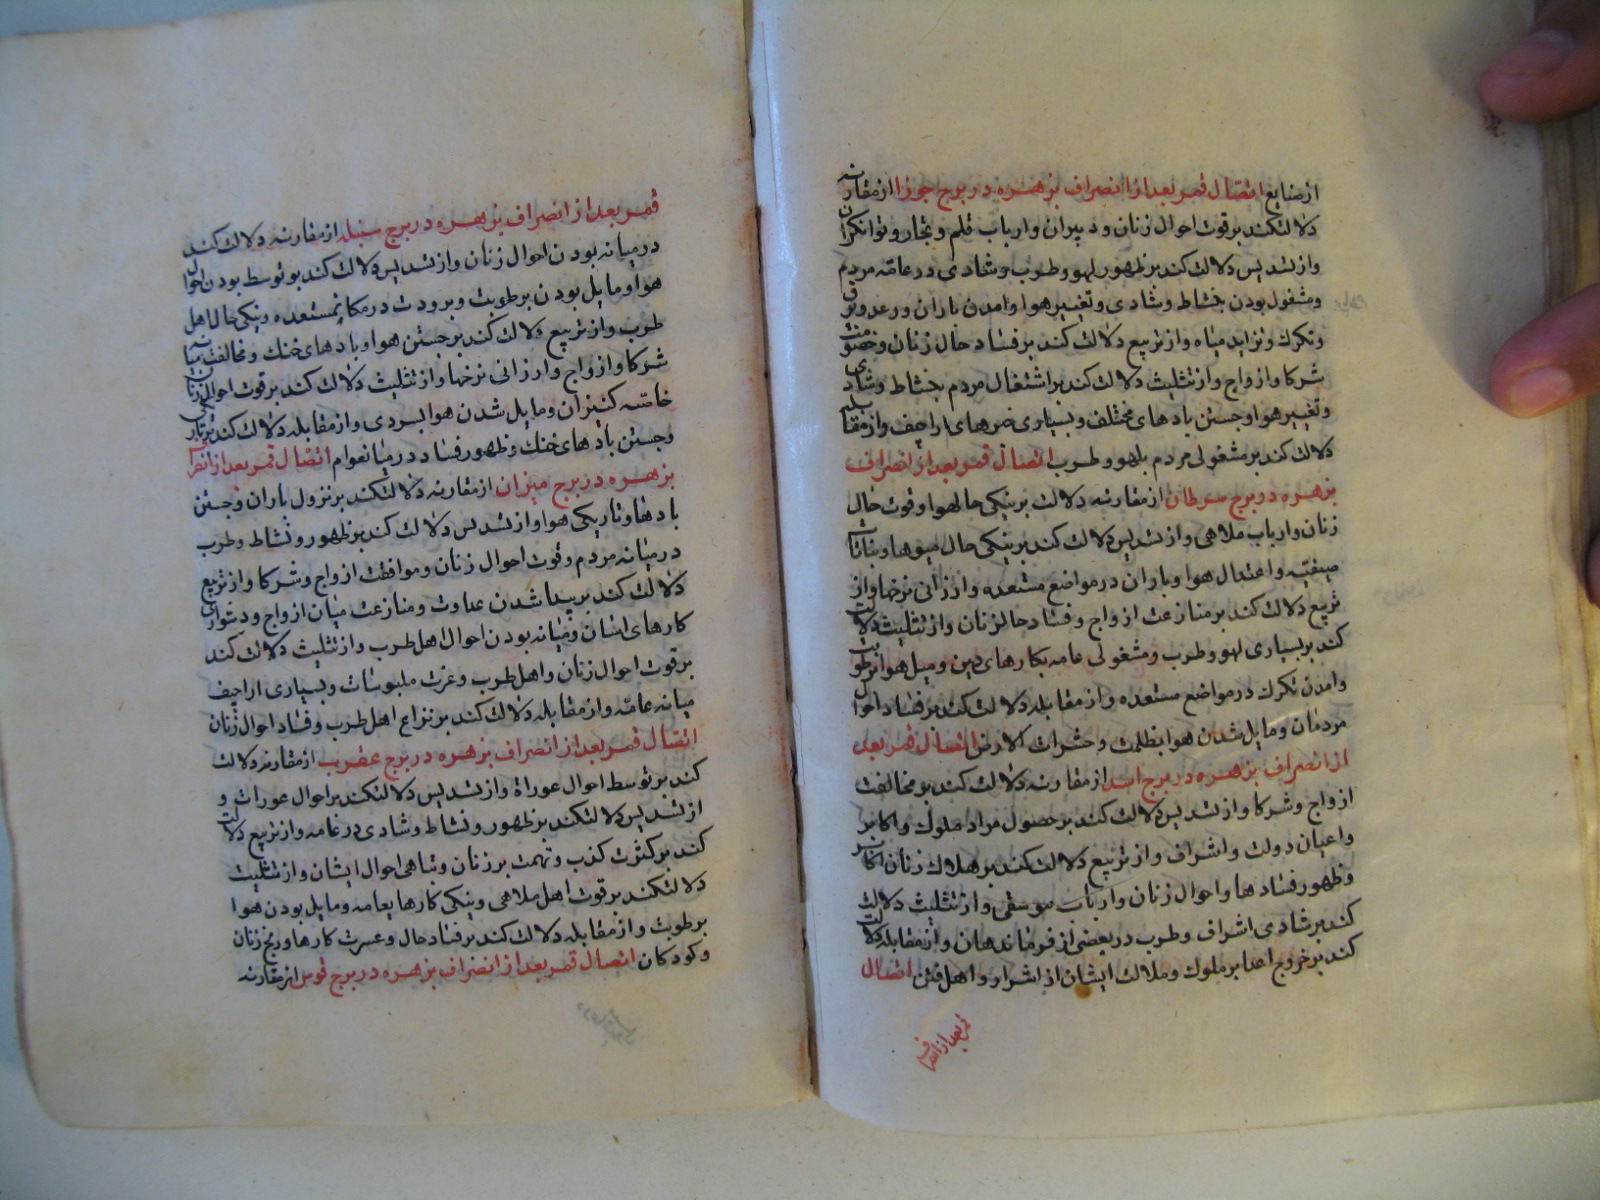 از ضایع اتصال قمر بعد از انصراف بزهره در برج جوزا از مقارنه
دلالت کند بر قوت احوال زنان و دبیران و ارباب قلم و تجار و توانکران
و از تسدیس دلالت کند بر ظهور لهو و طرب و شادی در عامه مردم
و مشغول بودن بنشاط و شادی و تغییر هوا و امدن باران و رعد و برق
و تکرک و تزاید میاه و از تربیع دلالت کند بر فساد حال زنان و خصومت
شرکا و ازواج و از تثلیث دلالت کند بر اشتغال مردم بنشاط و شادی
و تغییر هوا و جستن بادهای مختلف و بسیاری خبرهای اراجیف و از مقابله
دلالت کند بر مشغولی مردم بلهو و طرب اتصال قمر بعد از انصراف
بزهره در برج سرطان از مقارنه دلالت بر نیکی حال هوا و قوت حال
زنان و ارباب ملاهی و از تسدیس دلالت کند بر نیکی حال میوها و نباتات
صیفیه و اعتدال هوا و باران در مواضع مستعده و ارزانی نرخها و از
تربیع دلالت کند بر منازعت ازواج و فساد حال زنان و از تثلیث دلالت
کند بر بسیاری لهو و طرب و مشغولی عامه بکارهای دین و میل هوا برطوبت
و امدن تکرک در مواضع مستعده و از مقابله دلالت کند بر فساد احوال
مردمان و مایل شدن هوا بظلمت و حشرات الارض اتصال قمر بعد
از انصراف بزهره در برج اسد از مقارنه دلالت کند بر مخالفت
ازواج و شرکا و از تسدیس دلالت کند بر حصول مراد ملوک و اکابر
و اعیان دولت و اشراف و از تربیع دلالت کند بر هلاک زنان اکابر
و ظهور فسادها و احوال زنان و ارباب موسیقی و از تثلیث دلالت
کند بر شادی اشراف و طرب در بعضی از فرماندهان و از مقابله دلالت
کند بر خروج اعدا بر ملوک و ملالت ایشان از اشرار و اهل فتن اتصال
قمر بعد از انصراف
قمر بعد از انصراف بزهره در برج سنبله از مقارنه دلالت کند
در میانه بودن احوال زنان و از تسدیس دلالت کند بر توسط بودن احوال
هوا و مایل بودن برطوبت و برودت در مکان مستعده و نیکی حال اهل
طرب و از تربیع دلالت کند بر جستن هوا و بادهای خنک و مخالفت میانه
شرکا و ازواج و ارزانی نرخها و از تثلیث دلالت کند بر قوت احوال زنان
خاصه کنیزان و مایل شدن هوا بسردی و از مقابله دلالت کند بر تاریکی
و جستن بادهای خنک و ظهور فساد در میان عوام اتصال قمر بعد از انصراف
بزهره در برج میزان از مقارنه دلالت کند بر نزول باران و جستن
بادها و تاریکی هوا و از تسدیس دلالت کند بر ظهور و نشاط و طرب
در میانه مردم و قوت احوال زنان و موافقت ازواج و شرکا و از تربیع
دلالت کند بر پیدا شدن عداوت و منازعت میان ازواج و دشواری
کارهای ایشان و میانه بودن احوال اهل طرب و از تثلیث دلالت کند
بر قوت احوال زنان و اهل طرب و عزت ملبوسات و بسیاری اراجیف
میانه عامه و از مقابله دلالت کند بر نزاع اهل طرب و فساد احوال زنان
اتصال قمر بعد از انصراف بزهره در برج عقرب از مقارنه دلالت
کند بر توسط احوال عوراة و از تسدیس دلالت کند بر احوال عورات و
از تسدیس دلالت کند بر ظهور و نشاط و شادی در عامه و از تربیع دلالت
کند بر کثرت کذب و تهمت بر زنان و تباهی احوال ایشان و از تثلیث
دلالت کند بر قوت اهل ملاهی و نیکی کارها بعامه و مایل بودن هوا
برطوبت و از مقابله دلالت کند بر فساد حال و عسرت کارها و رنج زنان
و کودکان اتصال قمر بعد از انصراف بزهره در برج قوس از مقارنه